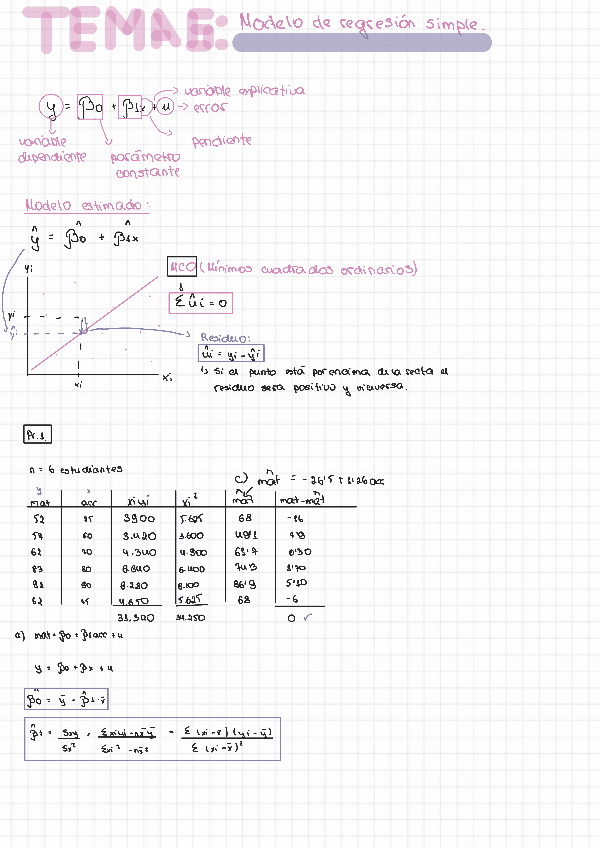 TEMA 6: Modelo de regresión simple.
y = β0 + β1x + u
→ variable explicativa
→ error
variable dependiente
parámetro constante
pendiente
Modelo estimado:
ŷ = β̂0 + β̂1x
yi
MCO (Mínimos cuadrados ordinarios)
Σûi = 0
yi
ŷi
Residuo:
ûi = yi - ŷi
xi
xi
↳ Si el punto está por encima de la recta el
residuo será positivo y viceversa.
Pr.1
n = 6 estudiantes
y x
mat acc xiyi xi² mat mat-mat
52 3900 5.625 68 -16
57 60 3.420 3.600
62 70 4.340 4.900
83 80 6.640 6.400
90 8.100
62 4.650 5.625 68 -6
0 ✓
a) mat = β0 + β1acc + u
y = β0 + βx + u
β̂0 = ȳ - β̂1·x̄
β̂1 = Sxy / Sx² = Σxiyi - nx̄ȳ / Σxi² - nx̄² = Σ(xi - x̄)(yi - ȳ) / Σ(xi - x̄)²